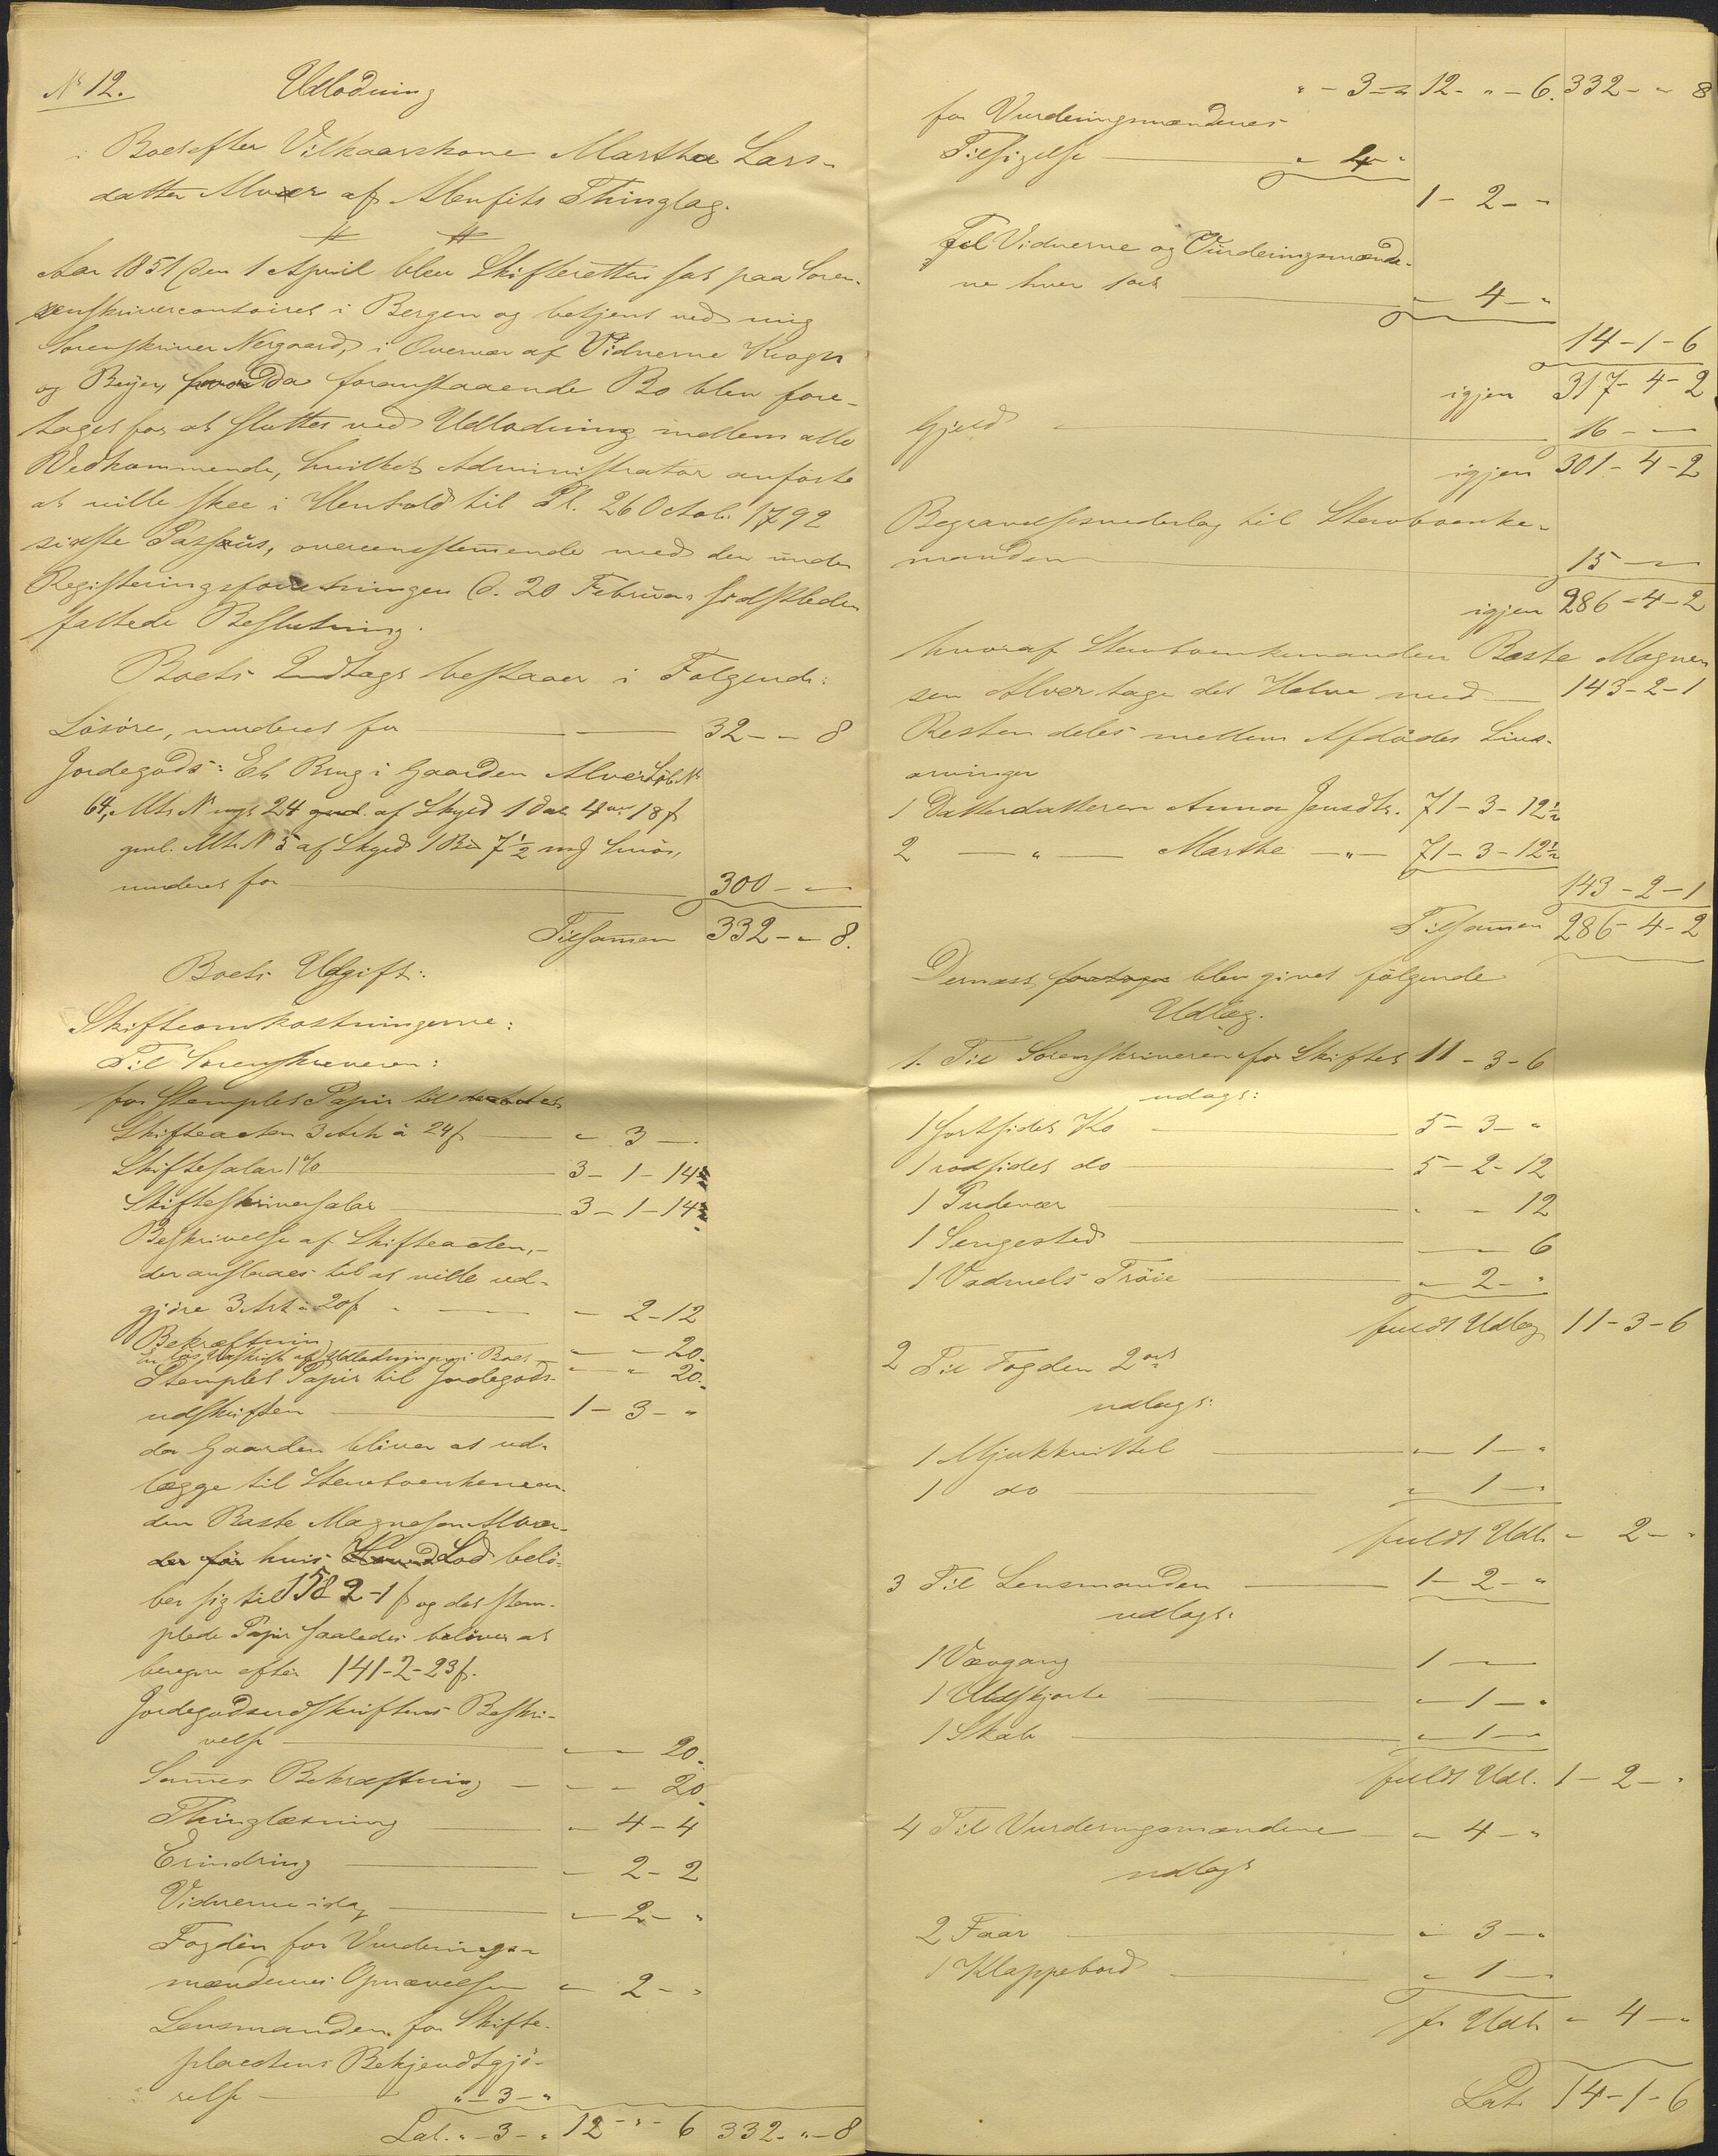 No 12. Udlodning
i Boet efter Vilkaarskone Martha Lars-
datter Alver af Alenfits Thinglag.
Aar 1851 den 1 April blev Skifteretten sat paa Soren-
skrivercontoiret i Bergen og betjent ved mig
Sorenskriver Nergaard, i Overvær af Vidnerne Krogh
og Beyer, da foranstaaende Bo blev fore-
taget for at sluttes ved Udlodning mellem alle
Vedkommende, hvilket Administrator anførte
at ville skee i Henhold til Pl. 26 Octob. 1792
sidste Passus, overensstemende med den under
Registeringsforretningen d. 20 Februar sidstleden
fattede Beslutning.
Boets Indtægt bestaaer i Følgende:
Løsøre, vurderet for — 32 - " - 8
Jordegods: Et Brug i Gaarden Alver Løb. No
64, Mtr. No nye 24 af Skyld 1 Dal. 4 ort 18 s
gml. Mtr. No 5 af Skyld 1 Bd 7½ mg Smør,
vurderet for — 300 - " -
Tilsamen 332 - " - 8.
Boets Udgift:
Skifteomkostningerne:
Til Sorenskriveren:
for Stemplet Papir til
Skifteacten 3 Ark à 24 s — " - 3 - "
Skiftesalar 1% — 3 - 1 - 14
Skifteskriversalar — 3 - 1 - 14
Beskrivelse af Skifteacten,
der anslaaes til at ville ud-
gjøre 3 Ark à 20 s — " - 2 - 12
Bekræftning — " - " - 20
En løs Udskrift af Udlodningen i Boet — " - " - 20
Stemplet Papir til Jordegods-
udskriften — 1 - 3 - "
da Gaarden bliver at ud-
lægge til Stervboenkeman-
den Baste Magnesen Alver
hvis Lod belø-
ber sig til 158 - 2 - 1 s og det stem-
plede Papir saaledes bliver at
beregne efter 141 - 2 - 23 s.
Jordegodsudskriftens Beskri-
velse — " - " - 20
Sammes Bekræftning — " - " - 20
Thinglæsning — " - 4 - 4
Erindring — " - 2 - 2
Vidnerne idag — " - 2 - "
Fogden for Vurderings-
mændenes Opnævnelse " - 2 - "
Lensmanden for Skifte-
placatens Bekjendtgjø-
relse — " - 3 - "
Lat. " - 3 - " 12 - " - 6 332 - " - 8
" - 3 - " 12 - " - 6. 332 - " - 8
for Vurderingsmændenes
Tilsigelse — " 4 - "
1 - 2 - "
Til Vidnerne og Vurderingsmænde-
ne hver 1 ort — " - 4 - "
14 - 1 - 6
igjen 317 - 4 - 2
Gjæld — 16 - " -
igjen 301 - 4 - 2
Begravelsesvederlag til Stervboenke-
manden — 15 - " -
igjen 286 - 4 - 2
hvoraf Stervboenkemanden Baste Magne-
sen Alver tager det Halve med — 143 - 2 - 1
Resten deles mellem Afdødes Livs-
arvinger
1 Datterdatteren Anna Jensdtr. 71 - 3 - 12½
2 — " — Marthe — " — 71 - 3 - 12½
143 - 2 - 1
Tilsamen 286 - 4 - 2
Dernæst blev givet følgende
Udlæg.
1. Til Sorenskriveren for Skiftet 11 - 3 - 6
udlagt:
1 sortsidet Ko — 5 - 3 - "
1 rødsidet do — 5 - 2 - 12
1 Pudevær — " - " - 12
1 Sengested — " - " - 6
1 Vadmels Trøie — " - 2 - "
fuldt Udlæg 11 - 3 - 6
2 Til Fogden 2 ort
udlagt:
1 Mjukknittel — " - 1 - "
1 do — " - 1 - "
fuldt Udl. " - 2 - "
3 Til Lensmanden — 1 - 2 - "
udlagt:
1 Vævgang — 1 - " -
1 Uldskjorte — " - 1 - "
1 Skab — " - 1 - "
fuldt Udl. 1 - 2 - "
4 Til Vurderingsmændene — " - 4 - "
udlagt
2 Faar — " - 3 - "
1 Klappebord — " - 1 -
f. Udl. " - 4 - "
Lat. 14 - 1 - 6